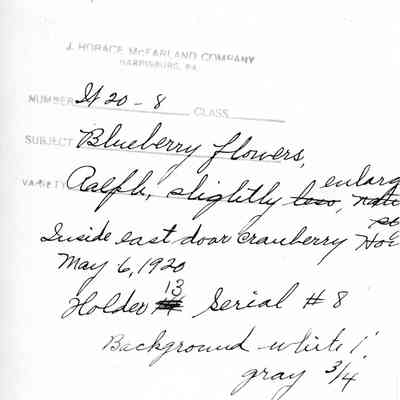 J. HORACE McFARLAND COMPANY
HARRISBURG, PA.
NUMBER 20 - 8 CLASS
SUBJECT Blueberry flowers,
enlarg
VARIETY slightly less,
Inside east door Cranberry
May 6, 1920
13
Holder Serial # 8
Background - white 1
gray 3/4